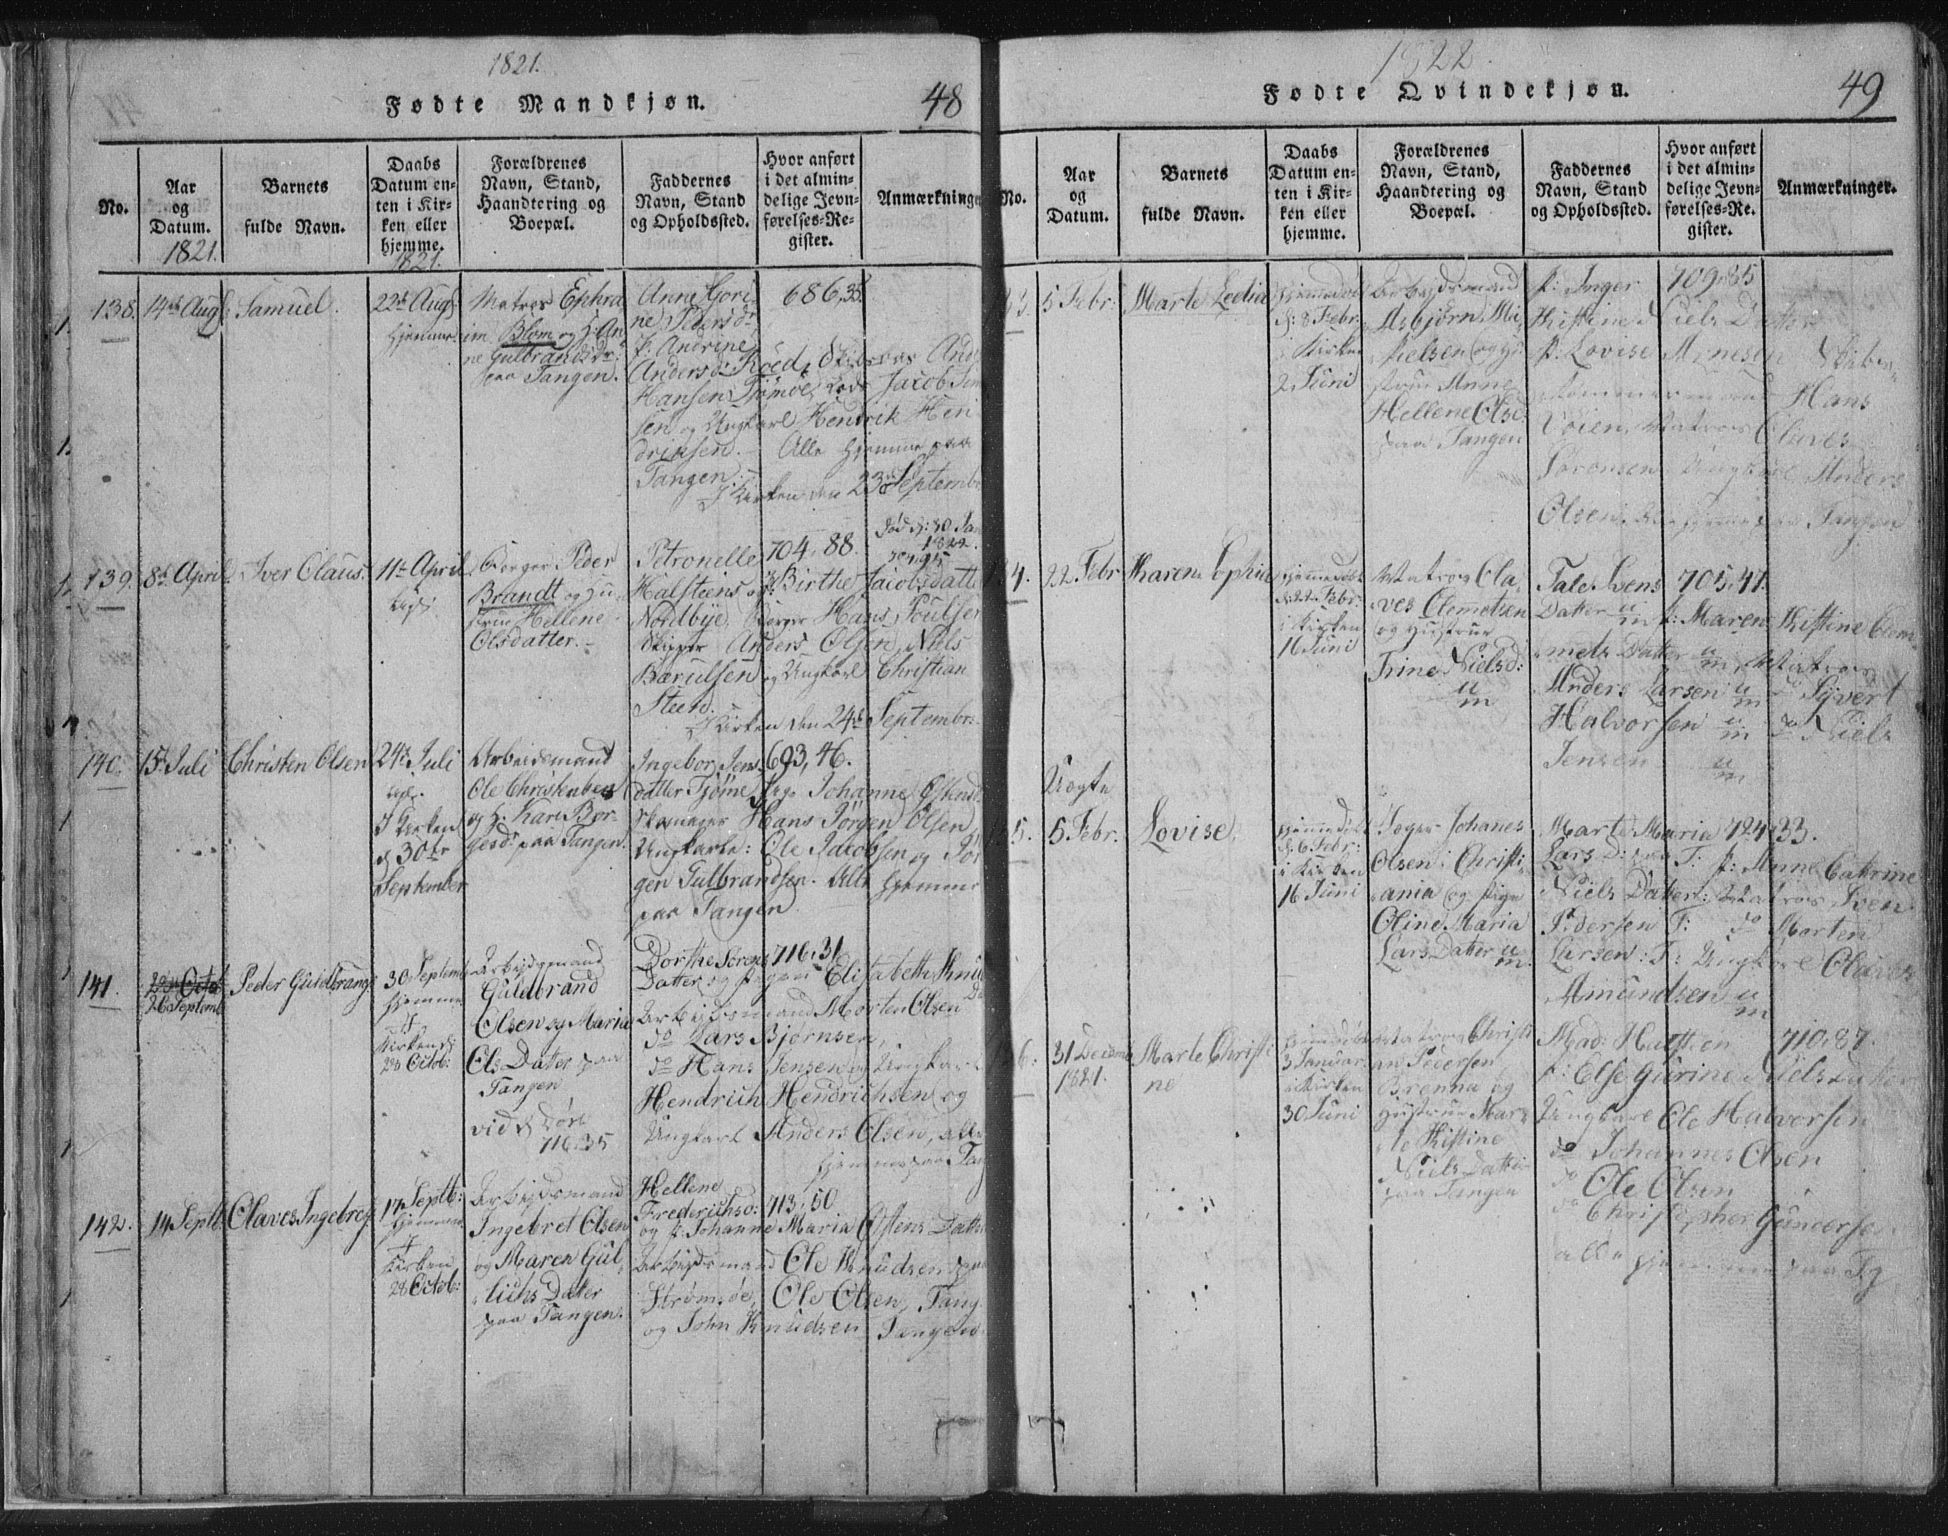 1821.
Fødte Mandkjøn.
48
No.
Aar
og
Datum.
1821.
Barnets
fulde Navn.
Daabs
Datum en-
ten i Kir-
ken eller
hjemme.
1821.
Forældrenes
Navn, Stand,
Haandtering og
Boepæl.
Faddernes
Navn, Stand
og Opholdssted.
Hvor anført
i det almin-
delige Jevn-
førelses-Re-
gister.
Anmærkninger
138.
14de Aug
Samuel.
22de Aug
hjemme
Matros Ephra
im Blom og H: An
ne Gulbrandsdr:
paa Tangen.
Anne Gori
ne Pedersdr
P. Andrine
Andersdr Röed,
Hansen Tjømöe,
Jacob Jen
sen og Ungkarl Hendrik Hen
driksen. Alle hjemme paa
Tangen.
I Kirken den 23de Septemb
686,35.
139.
8de April
Iver Claus.
11te April
Borger Peder
Brandt og Hu-
strue Hellene
Olsdatter.
Petronelle
Halsteens og P: Birthe Jacobsdatter
Nordbye, Borger Hans Poulsen
Skipper Anders Olsen, Niels
Bærulsen og Ungkarl Christian
Steen.
I Kirken den 24de Septembr:
704, 88.
død d: 30 Jan
1822.
140.
15de Juli
Christen Olsen
24de Juli
I Kirken
d 30te
September
Arbeidsmand
Ole Christensen
og H: Kari Bør-
gesdr paa Tangen.
Ingebor Jens-
datter Tjöme, Johanne
Hans Jörgen Olsen
Ungkarle: Ole Jacobsen og Jör
gen Gulbrandsen. Alle hjemme
paa Tangen
693, 46.
141.
22de Octob
26 Septemb
Peder Guldbrand
30 Septemb
hjemme
I
Kirken d:
28 Octob:
Arbejdsmand
Guldbrand
Olsen og Maria
Els Dater paa
Tangen
vid d Dört
716.35
Dorthe Sørens
Datter og Pigen Elisabeth Knud
Arbejdsmand Morten Olsen
do Lars Bjørnsen,
do Hans Jensen og Ungkarl
Hendrich Hendrichsen og
Ungkarl Anders Olsen, alle
hjemme paa Tang
716.31
142.
14 Septb
Olaves Ingebreg
17 Septb:
hjemme
I
Kirken
28 Octob:
Arbejdsmand
Ingebret Olsen
og Maren Gul-
lichs Dater
paa Tangen.
Hellene
Frederichsd:
og P: Johanne Maria Østens Datter
Arbejdsmand Ole Knudsen paa
Strømsøe, Ole Olsen, Tang
og John Knudsen Tangen.
713,50
1822.
Fødte Qvindekjøn.
49
No.
Aar
og
Datum.
Barnets
fulde Navn.
Daabs
Datum en-
ten i Kir-
ken eller
hjemme.
Forældrenes
Navn, Stand,
Haandtering og
Boepæl.
Faddernes
Navn, Stand
og Opholdssted.
Hvor anført
i det almin-
delige Jevn-
førelses-Re-
gister.
Anmærkninger.
3.
5 Febr:
Marte Ledia
hjemmedöbt
d: 8 Febr:
i Kirken
2 Juni
Arbejdsmand
Asbjørn Mi-
kielsen og Hu-
strue Anne
Hellene Olsd
paa Tangen
P: Inger
Kistine Niels Datter
P: Lovise Arnesen
Tömmermand Hans
Voien, Matros Claves
Sörensen, Ungkarl Anders
Olsen, alle hjemme paa Tangen
709.85
4.
22 Febr
Karen Sophia
hjemmedöbt
d: 22 Febr:
i Kirken
16 Juni
Matros Cla-
ves Clemetsen
og Hustrue
Trine Nielsd:
Tale Svens
Datter P: Maren Kistine Clem
mets Datter, Matros
Anders Larsen do Syvert
Halvorsen do Niels
Jensen
705,47.
5.
Uægte
5 Febr.
Lovise,
hjemmedöbt
d: 6 Febr:
i Kirken
16 Juni
Johanes
Olsen i Christi-
ania og Pige
Oline Maria
Lars Datter
Marte Maria
Lars D: paa T: P: Anne Catrine
Niels Datter: Matros Sven
Pedersen T: do Morten
Larsen: T: Ungkarl Olaves
Amundsen
724.33.
6.
31 Decemb
1821.
Marte Christi
ne
hjemmedöbt
3 Januar
i Kirken
30 Juni
Matros Christi
an Pedersen
Brenna og
Hustrue Mar-
te Kistine
Niels Datter
paa Tangen
Mad:
P: Else Gurine Niels Datter
Ungkarl Ole Halvorsen
do Johannes Olsen
do Ole Olsen
do Christopher Gundersen
alle hjemme paa Tg
710.87.